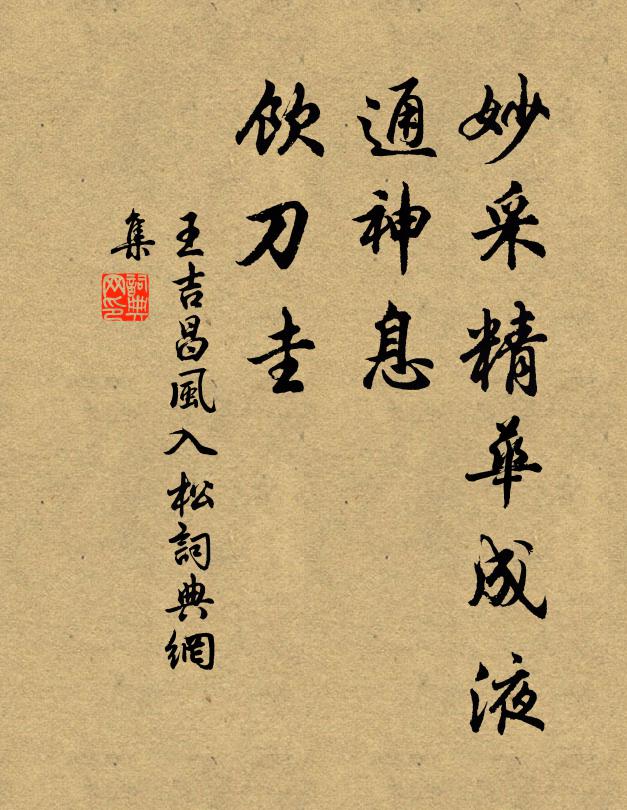 妙采精華成液
通神息
飲刀圭
王吉昌風入松詞典網
集
詞典
网印